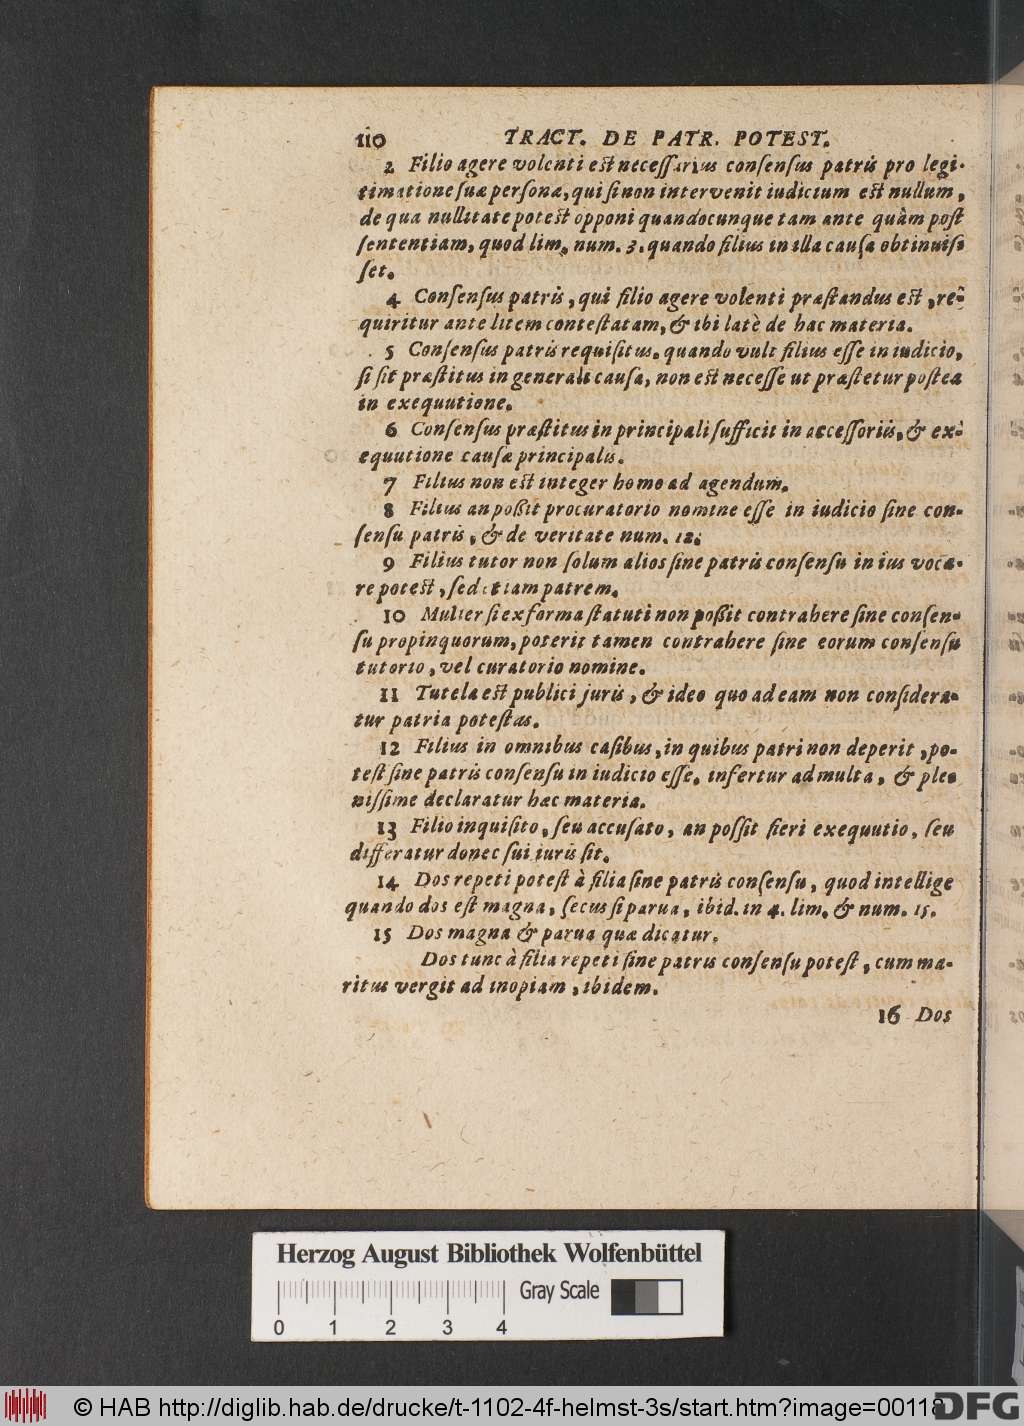 110 TRACT. DE PATR. POTEST.
2 Filio agere volenti est necessarius consensus patris pro legi-
timatione suæ personæ, qui si non intervenit iudicium est nullum,
de qua nullitate potest opponi quandocunque tam ante quàm post
sententiam, quod lim. num. 3. quando filius in illa causa obtinuis-
set.
4 Consensus patris, qui filio agere volenti præstandus est, re-
quiritur ante litem contestatam, & ibi latè de hac materia.
5 Consensus patris requisitus. quando vult filius esse in iudicio,
si sit præstitus in generali causa, non est necesse ut præstetur postea
in exequutione.
6 Consensus præstitus in principali sufficit in accessoriis, & ex-
equutione causæ principalis.
7 Filius non est integer homo ad agendum.
8 Filius an poßit procuratorio nomine esse in iudicio sine con-
sensu patris, & de veritate num. 12.
9 Filius tutor non solum alios sine patris consensu in ius voca-
re potest, sed etiam patrem.
10 Mulier si ex forma statuti non poßit contrahere sine consen-
su propinquorum, poterit tamen contrahere sine eorum consensu
tutorio, vel curatorio nomine.
11 Tutela est publici juris, & ideo quo ad eam non considera-
tur patria potestas.
12 Filius in omnibus casibus, in quibus patri non deperit, po-
test sine patris consensu in iudicio esse. infertur ad multa, & ple-
nissime declaratur hæc materia.
13 Filio inquisito, seu accusato, an possit fieri exequutio, seu
differatur donec sui iuris sit.
14 Dos repeti potest à filia sine patris consensu, quod intellige
quando dos est magna, secus si parua, ibid. in 4. lim. & num. 15.
15 Dos magna & parua quæ dicatur.
Dos tunc à filia repeti sine patris consensu potest, cum ma-
ritus vergit ad inopiam, ibidem.
16 Dos
Herzog August Bibliothek Wolfenbüttel
Gray Scale
0 1 2 3 4
© HAB http://diglib.hab.de/drucke/t-1102-4f-helmst-3s/start.htm?image=00118
DFG